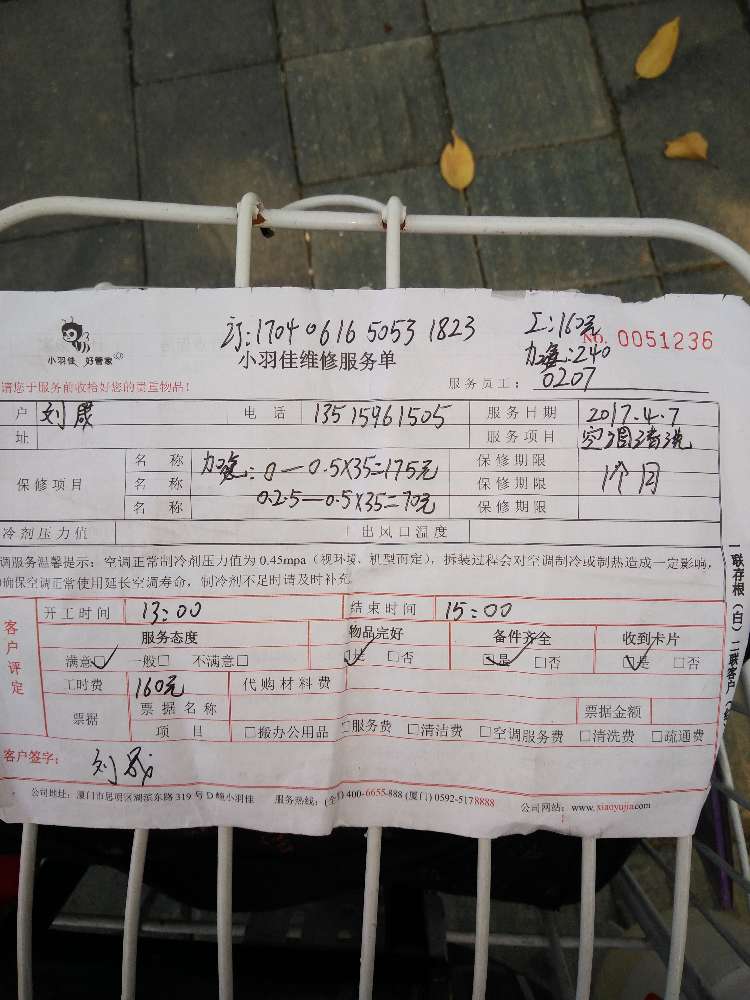 订:1704 0616 5053 1823
工:160元
小羽佳 好管家
小羽佳维修服务单
No. 0051236
加氟:240
请您于服务前收拾好您的贵重物品!
服务员工: 0207
户 刘晟 电话 13515961505 服务日期 2017.4.7
址 服务项目 空调清洗
保修项目 名称 加氟:0—0.5X35=175元 保修期限
名称 0.2.5—0.5X35=70元 保修期限 1个月
名称 保修期限
冷剂压力值 出风口温度
调服务温馨提示:空调正常制冷剂压力值为 0.45mpa(视环境、机型而定),拆装过程会对空调制冷或制热造成一定影响,
确保空调正常使用延长空调寿命,制冷剂不足时请及时补充
一联存根(白)二联客户(
客户评定
开工时间 13:00 结束时间 15:00
服务态度 物品完好 备件齐全 收到卡片
满意□ 一般□ 不满意□ □是 □否 □是 □否 □是 □否
工时费 160元 代购材料费
票据 票据名称 票据金额
项目 □搬办公用品 □服务费 □清洁费 □空调服务费 □清洗费 □疏通费
客户签字: 刘晟
公司地址:厦门市思明区湖滨东路 319 号 D 幢小羽佳 服务热线:(全国)400-6655-888 (厦门) 0592-5178888 公司网站:www.xiaoyujia.com